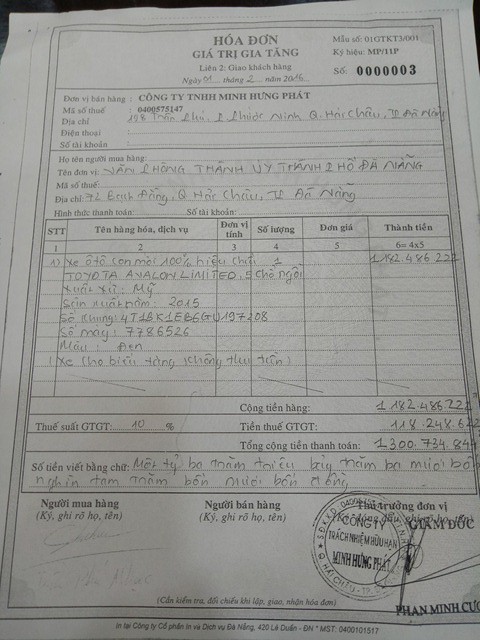 HÓA ĐƠN
GIÁ TRỊ GIA TĂNG
Liên 2: Giao khách hàng
Ngày 01 tháng 2 năm 2016
Mẫu số: 01GTKT3/001
Ký hiệu: MP/11P
Số: 0000003
Đơn vị bán hàng : CÔNG TY TNHH MINH HƯNG PHÁT
Mã số thuế : 0400575147
Địa chỉ : 198 Trần Phú, P Phước Ninh Q. Hải Châu, TP Đà Nẵng
Điện thoại :
Số tài khoản :
Họ tên người mua hàng:
Tên đơn vị: VĂN PHÒNG THÀNH ỦY THÀNH PHỐ ĐÀ NẴNG
Mã số thuế:
Địa chỉ: 72 Bạch Đằng, Q Hải Châu, TP Đà Nẵng
Hình thức thanh toán: Số tài khoản:
STT Tên hàng hóa, dịch vụ Đơn vị tính Số lượng Đơn giá Thành tiền
1 2 3 4 5 6= 4x5
1) Xe ôtô con mới 100% hiệu 1 1 182.486.222
TOYOTA AVALON LIMITED, 5 chỗ ngồi
Xuất xứ: Mỹ
Sản xuất năm: 2015
Số khung: 4T1BK1EB6GU197208
Số máy: 7786526
Màu: Đen
(Xe cho biếu tặng không thu tiền)
Cộng tiền hàng: 1 182.486.222
Thuế suất GTGT: 10 % Tiền thuế GTGT: 118.248.622
Tổng cộng tiền thanh toán: 1 300.734.844
Số tiền viết bằng chữ: Một tỷ ba trăm triệu bảy trăm ba mươi bốn
nghìn tám trăm bốn mươi bốn đồng
Người mua hàng Người bán hàng Thủ trưởng đơn vị
(Ký, ghi rõ họ, tên) (Ký, ghi rõ họ, tên)
GIÁM ĐỐC
CÔNG TY
TRÁCH NHIỆM HỮU HẠN
MINH HƯNG PHÁT
PHAN MINH
(Cần kiểm tra, đối chiếu khi lập, giao, nhận hóa đơn)
In tại Công ty Cổ phần In và Dịch vụ Đà Nẵng, 420 Lê Duẩn - ĐN * MST: 0400101517